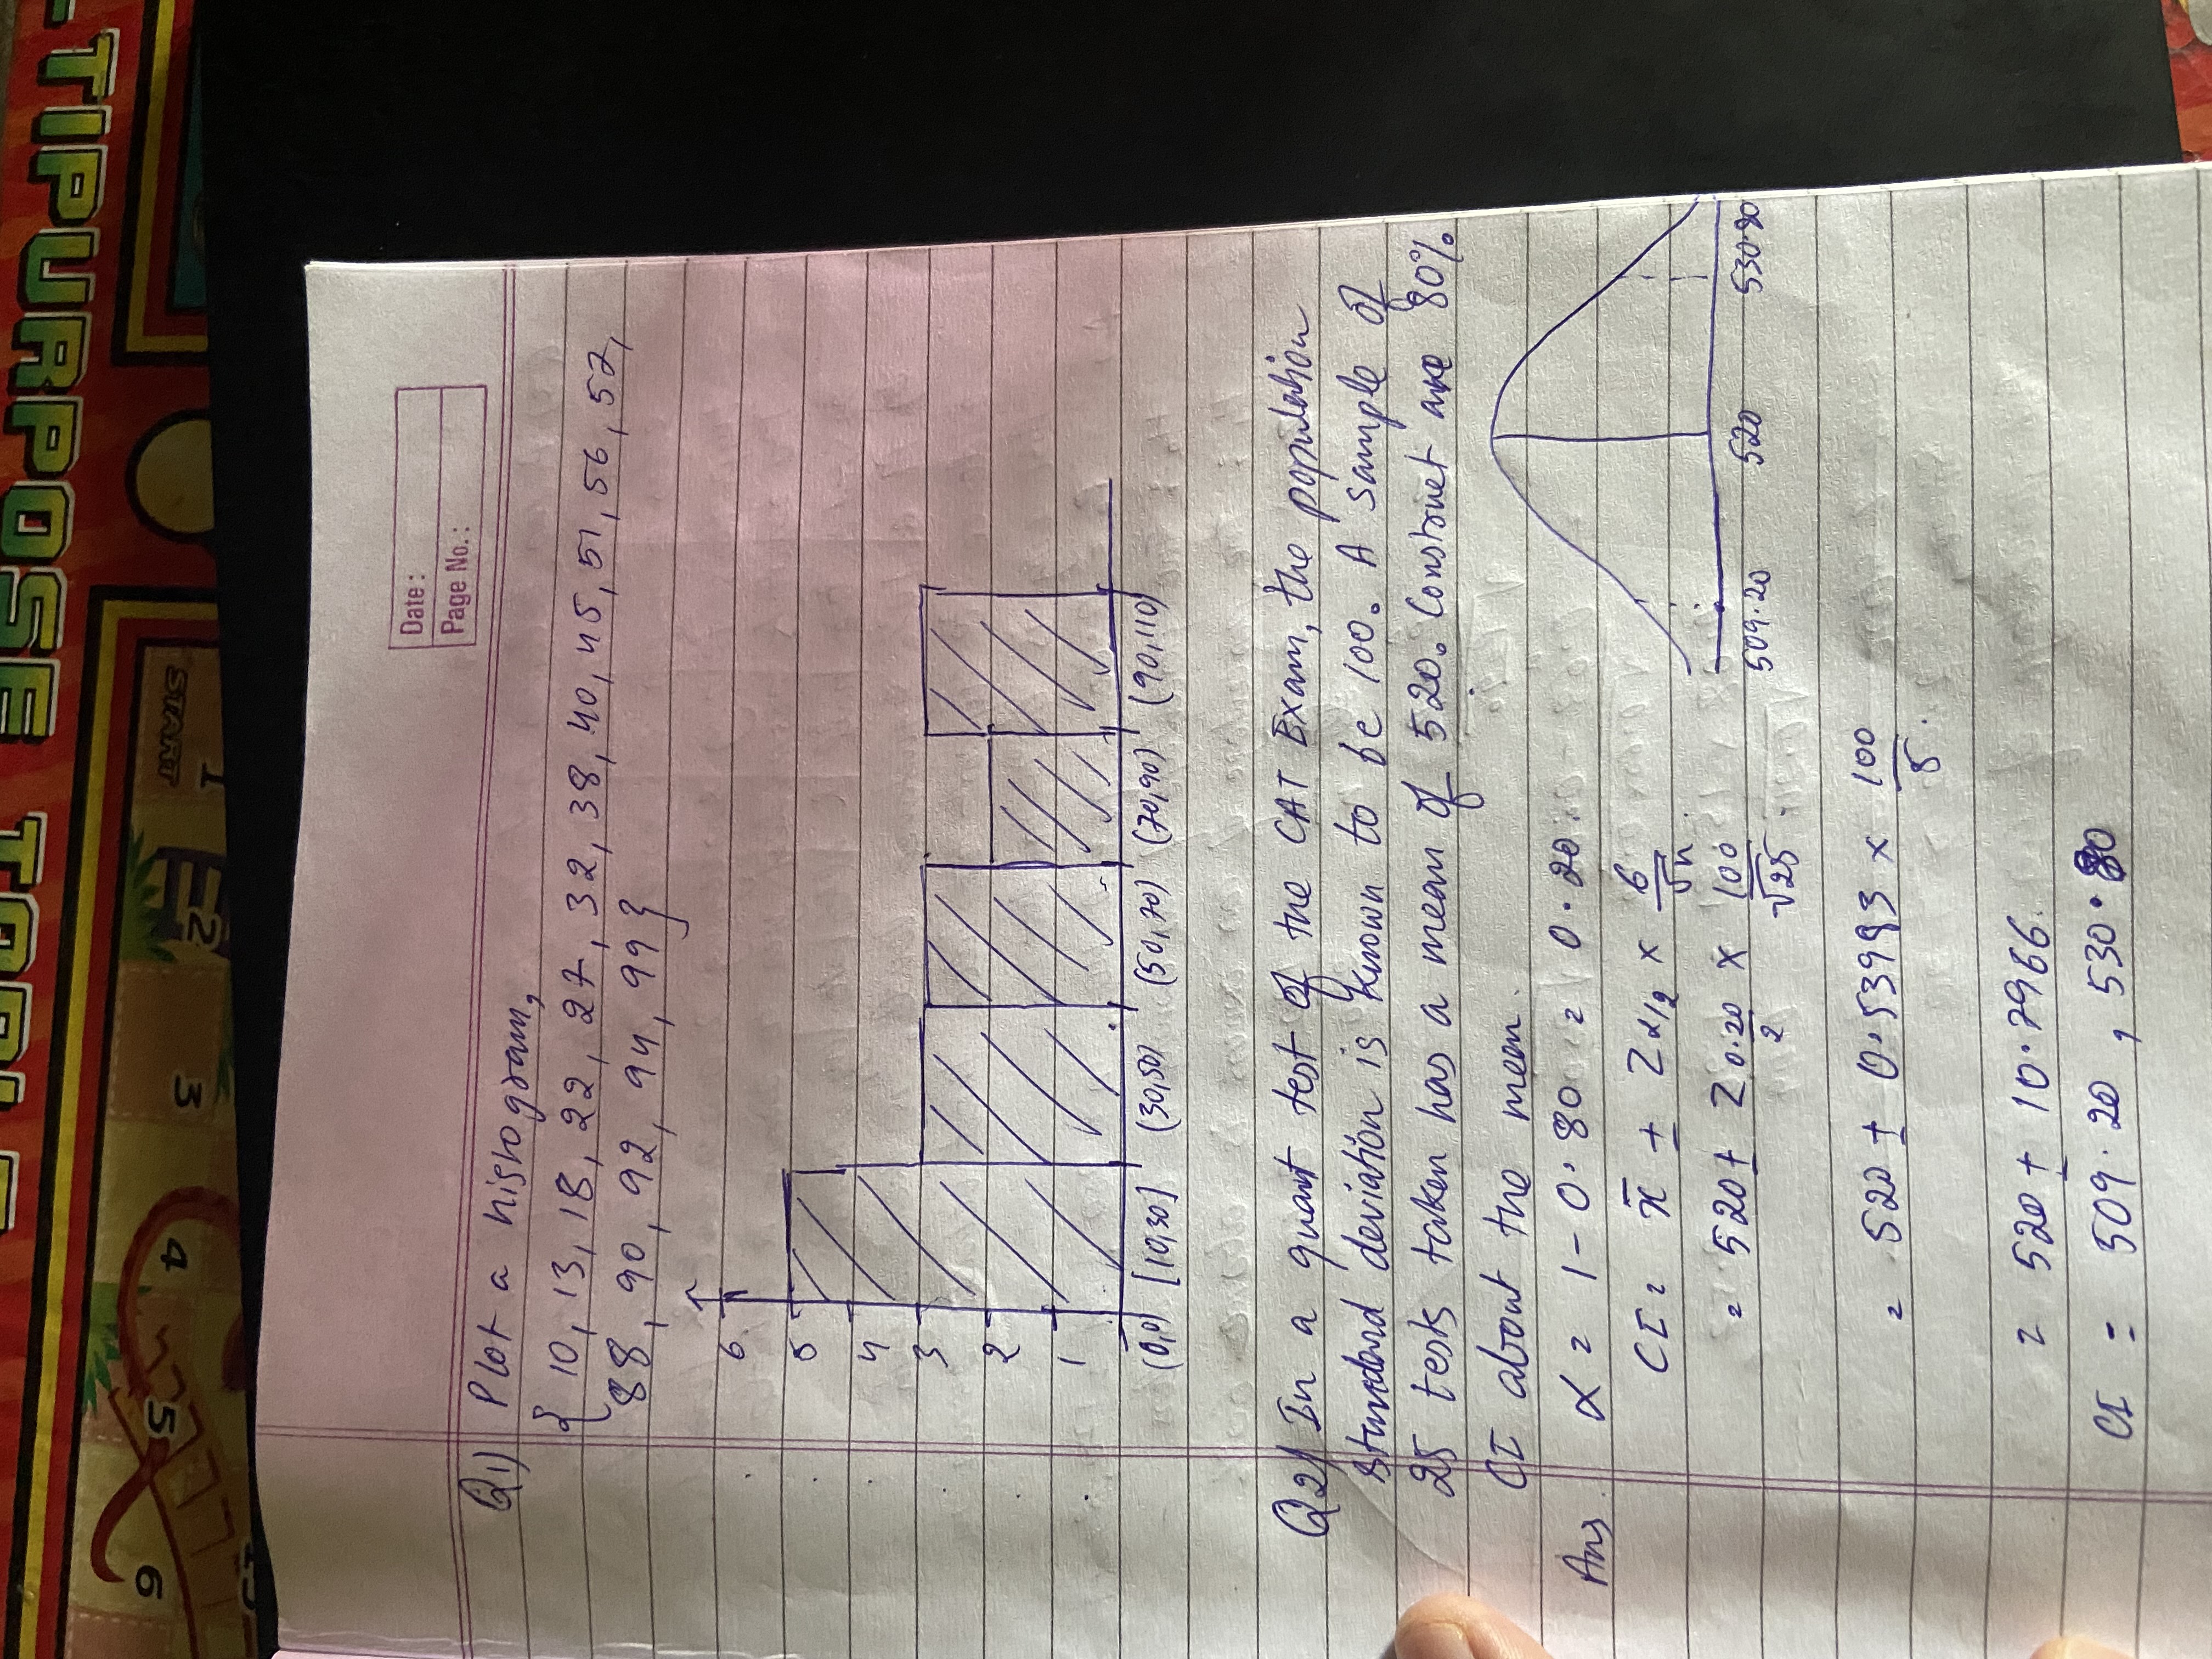 TIPURPOSE TABLE
6 5 4 3 2 1 START
Date :
Page No. :
Q1) Plot a histogram,
{ 10, 13, 18, 22, 27, 32, 38, 40, 45, 51, 56, 57,
88, 90, 92, 94, 99 }
6
5
4
3
2
1
(0,0) [10,30] (30,50) (50,70) (70,90) (90,110)
Q2) In a quant test of the CAT Exam, the population
standard deviation is known to be 100. A sample of
25 tests taken has a mean of 520. Construct 80%
CI about the mean.
Ans. α = 1 - 0.80 = 0.20.
CI = x̄ ± Z α/2 × σ/√n.
= 520 ± Z 0.20/2 × 100/√25.
509.20 520 530.80
= 520 ± 0.53983 × 100/5.
= 520 ± 10.7966.
CI = 509.20, 530.80